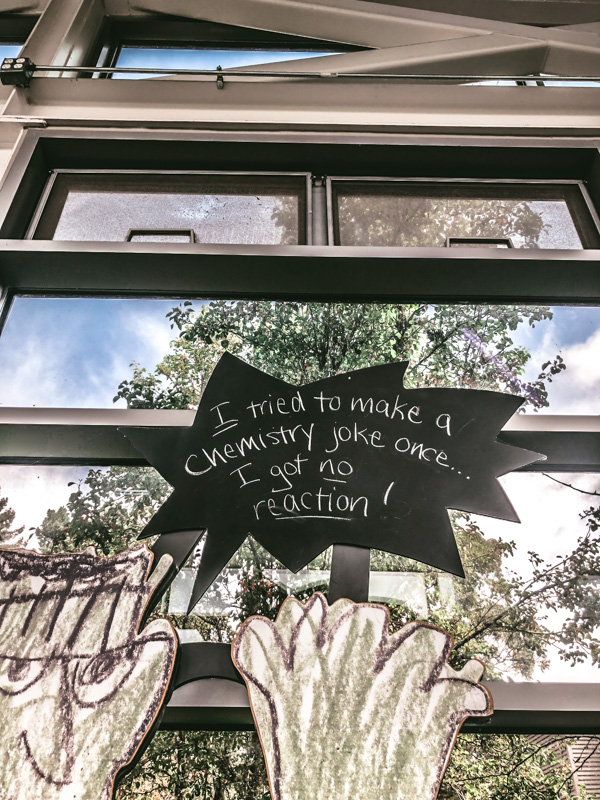 I tried to make a
chemistry joke once...
I got no
reaction!